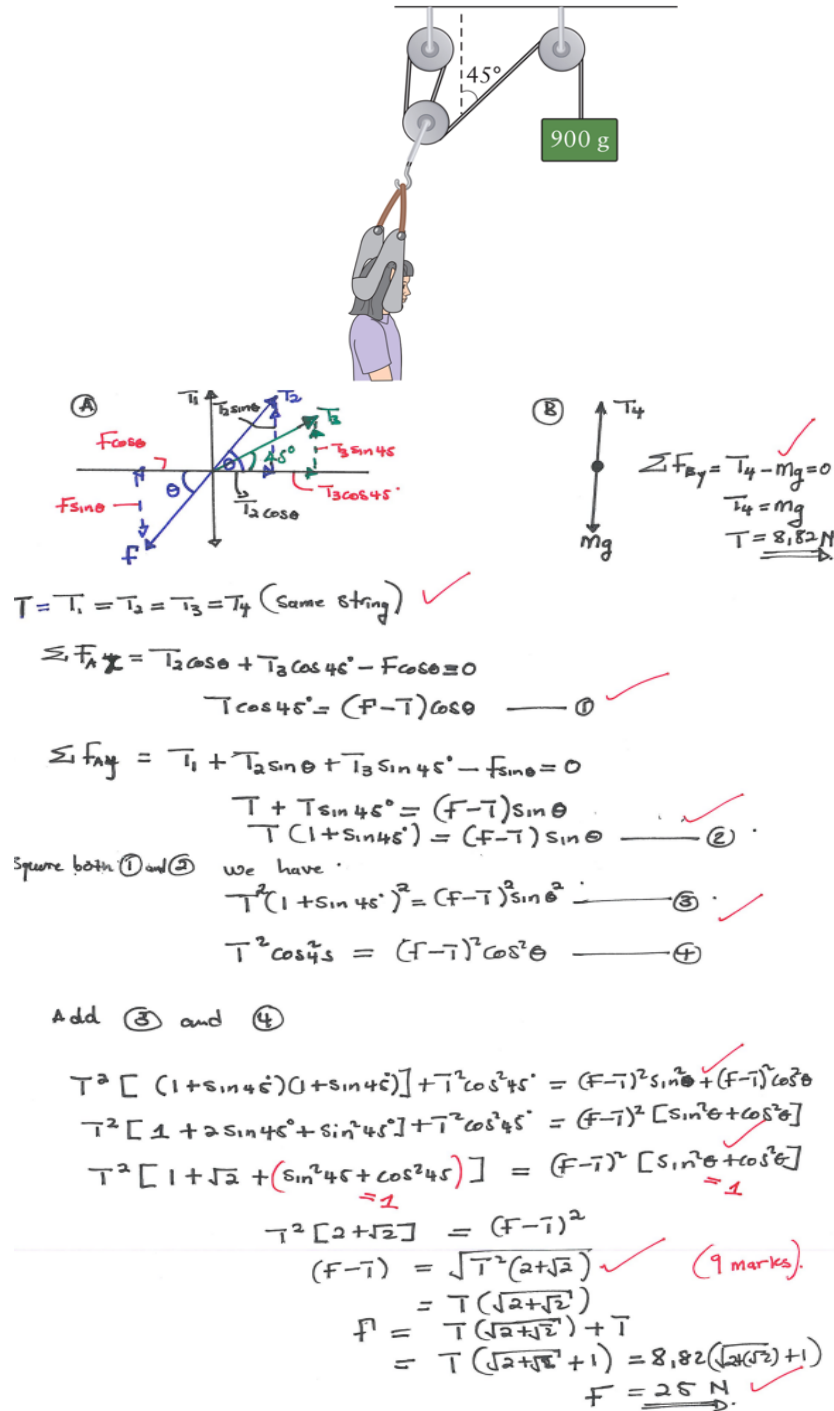 45°
900 g
Ⓐ
T₁
T₂sinθ
T₂
T₃
Fcosθ
θ
45°
T₃ sin45
θ
Fsinθ
T₂cosθ
T₃cos45°
F
Ⓑ
T₄
mg
ΣF_By = T₄ - mg = 0
T₄ = mg
T = 8,82 N
T = T₁ = T₂ = T₃ = T₄ (Same string) ✓
ΣF_Ax = T₂cosθ + T₃cos45° - Fcosθ = 0
Tcos45° = (F-T)cosθ —— ① ✓
ΣF_Ay = T₁ + T₂sinθ + T₃sin45° - Fsinθ = 0
T + Tsin45° = (F-T)sinθ ✓
T(1+sin45°) = (F-T)sinθ —— ② .
Square both ① and ② we have .
T²(1+sin45°)² = (F-T)²sinθ² —— ③ . ✓
T²cos²45 = (F-T)²cos²θ —— ④
Add ③ and ④
T²[(1+sin45°)(1+sin45°)] + T²cos²45° = (F-T)²sin²θ + (F-T)²cos²θ ✓
T²[1 + 2sin45° + sin²45°] + T²cos²45° = (F-T)²[sin²θ + cos²θ]
T²[1 + √2 + (sin²45 + cos²45)] = (F-T)²[sin²θ + cos²θ] ✓
=1 =1
T²[2+√2] = (F-T)²
(F-T) = √T²(2+√2) ✓ (9 marks).
= T(√2+√2)
F = T(√2+√2) + T
= T(√2+√2 + 1) = 8,82(√2+(√2) + 1)
F = 25 N ✓